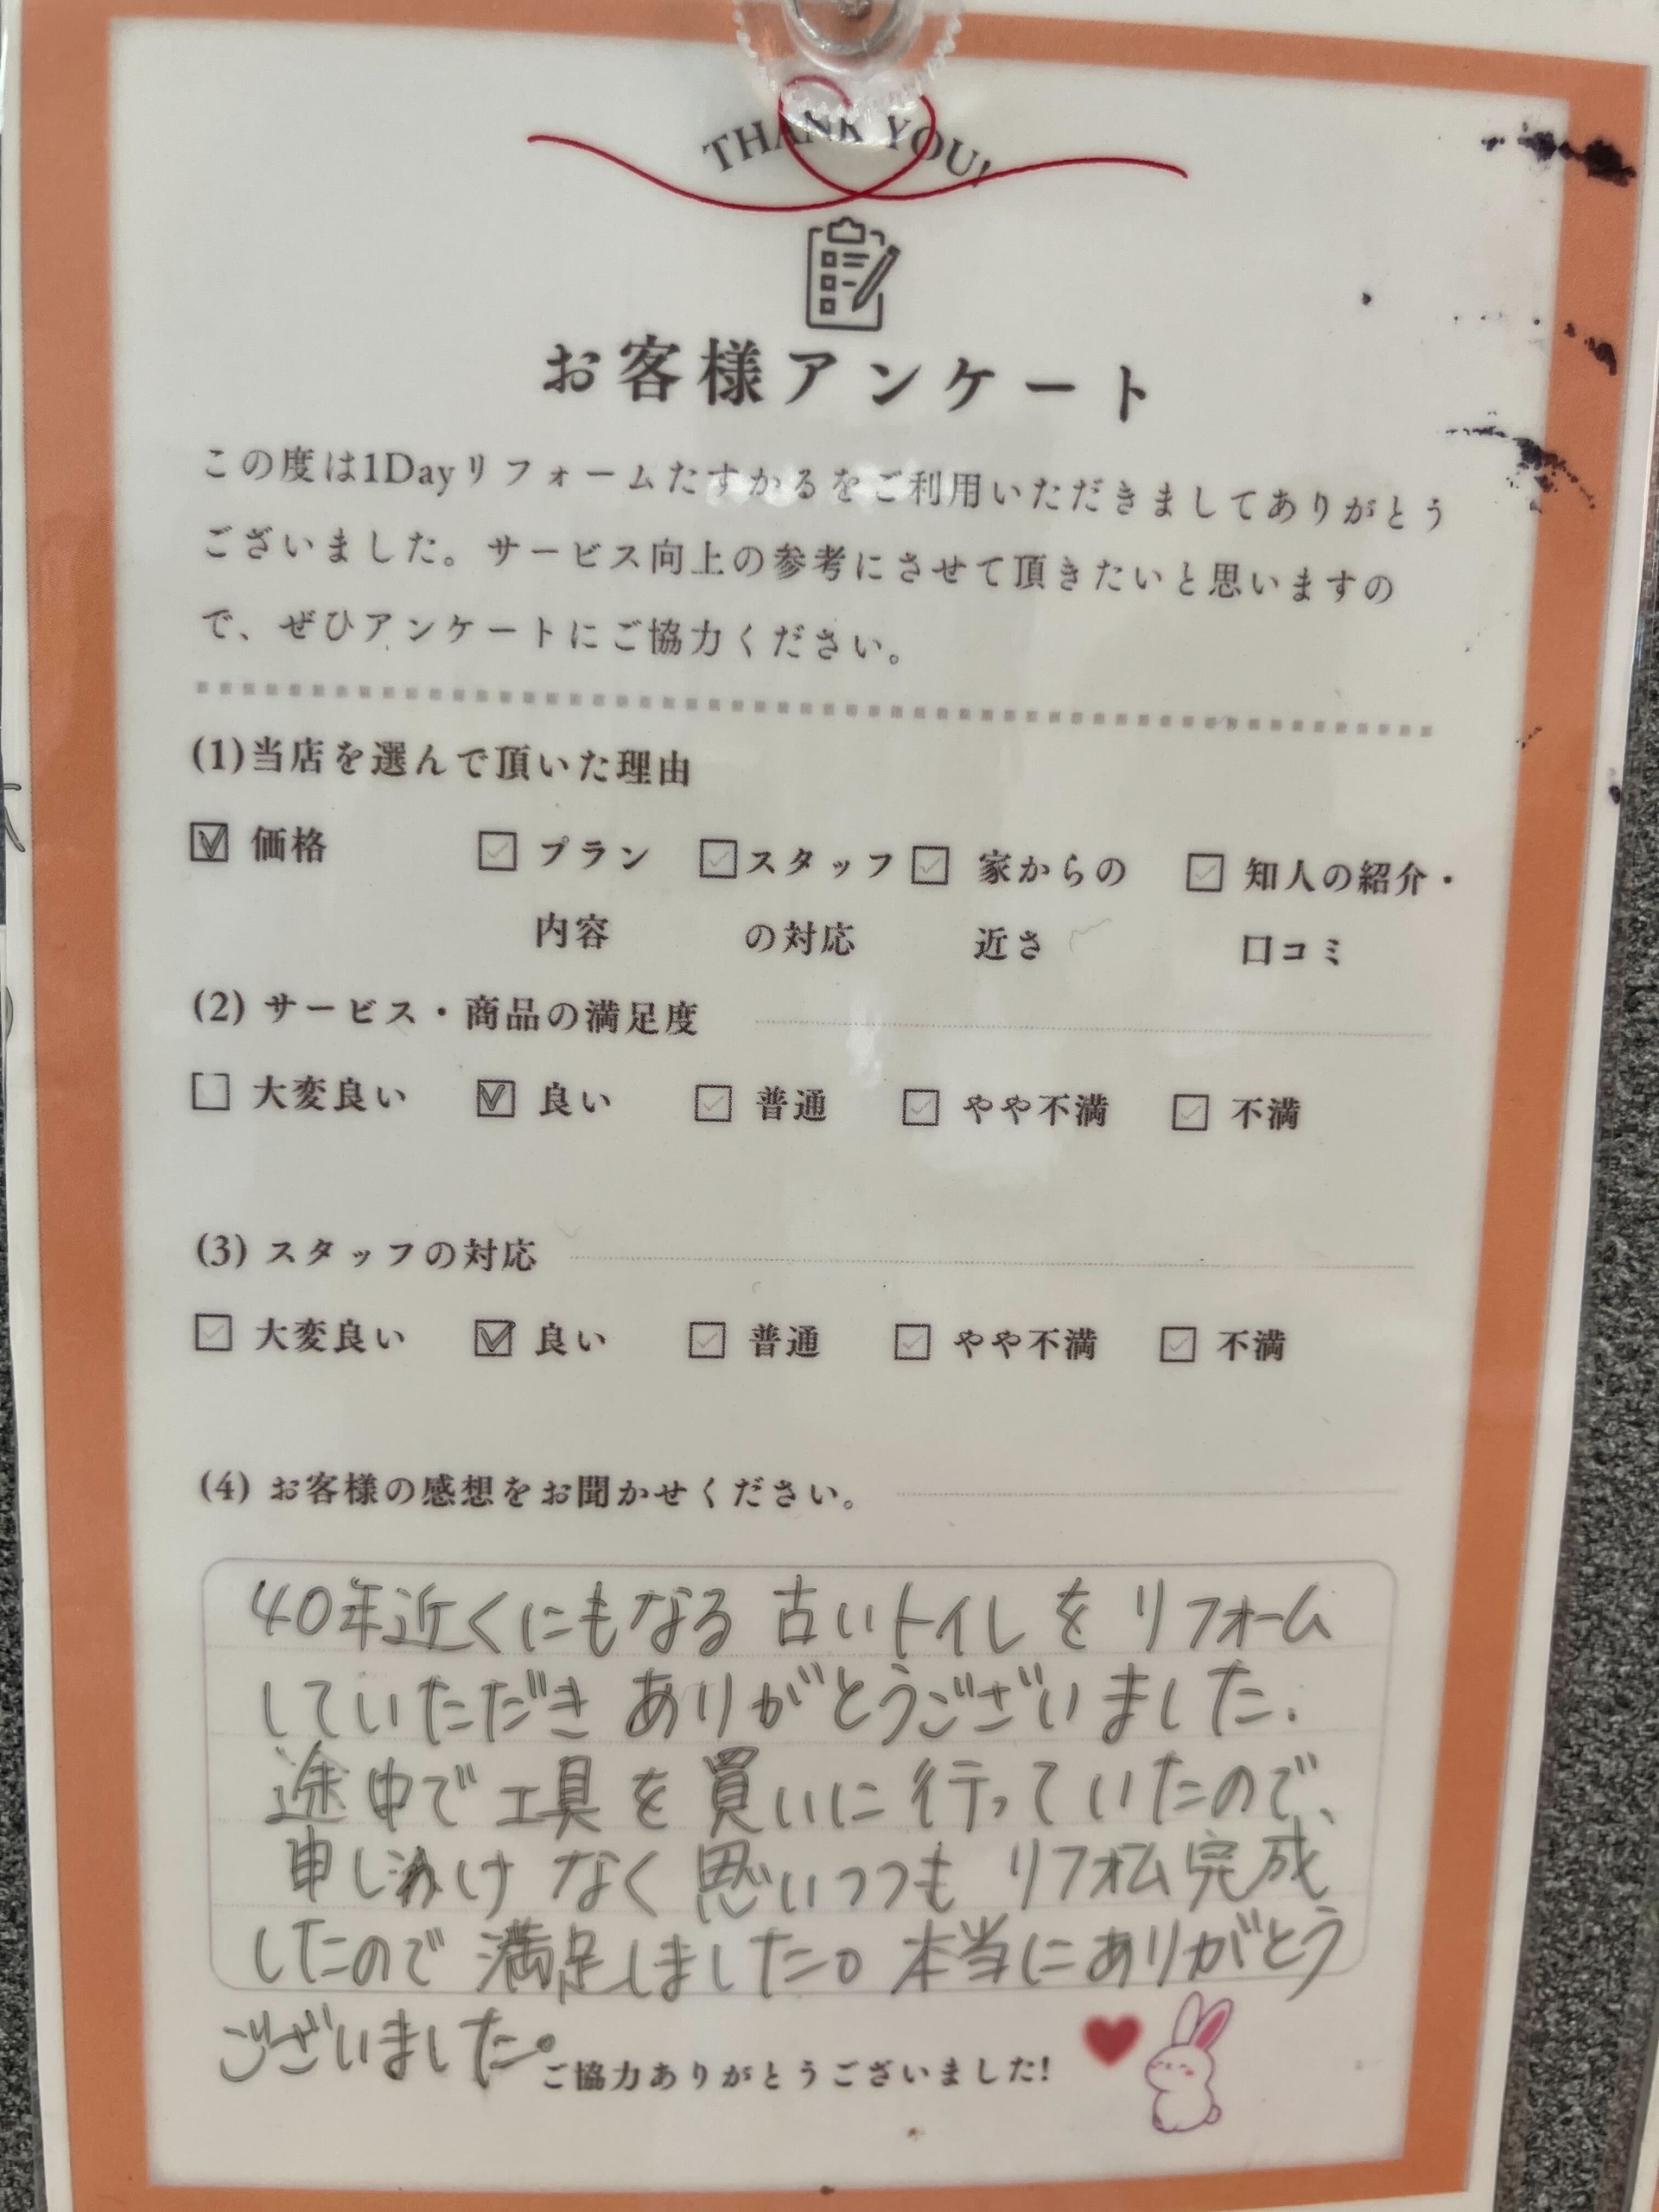 THANK YOU!
お客様アンケート
この度は1Dayリフォームたすかるをご利用いただきましてありがとう
ございました。サービス向上の参考にさせて頂きたいと思いますの
で、ぜひアンケートにご協力ください。
(1)当店を選んで頂いた理由
価格 プラン スタッフ 家からの 知人の紹介・
内容 の対応 近さ 口コミ
(2) サービス・商品の満足度
大変良い 良い 普通 やや不満 不満
(3) スタッフの対応
大変良い 良い 普通 やや不満 不満
(4) お客様の感想をお聞かせください。
40年近くにもなる 古いトイレを リフォーム
していただき ありがとうございました.
途中で工具を買いに行っていたので、
申しわけなく思いつつも リフォム完成
したので満足しました。本当にありがとう
ございました。
ご協力ありがとうございました!